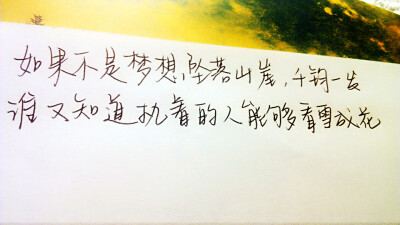 如果不是梦想,坠落山崖,千钧一发
谁又知道执着的人能够看雪成花